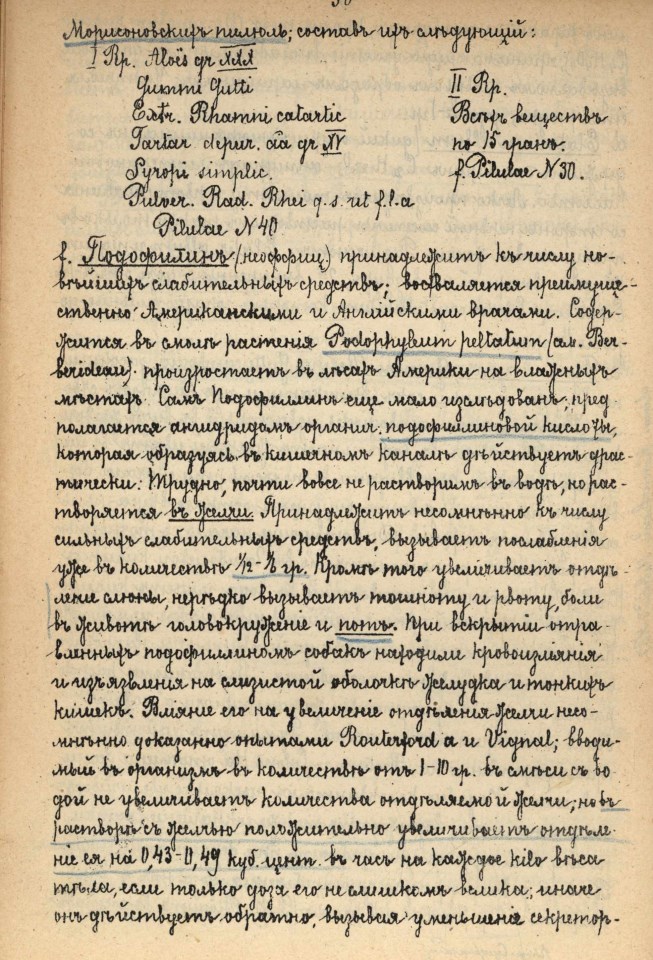 Морисоновскихъ пилюль; составъ ихъ слѣдующій:
I Rp. Aloës gr XXX
Gummi Gutti
II Rp.
Extr. Rhamni catartic
Всѣхъ веществъ
Tartar depur. āā gr XV
по 15 гранъ.
Syropi simplic.
f. Pilulae N 30.
Pulver. Rad. Rhei q. s. ut f. l. a
Pilulae N 40
f. Подофилинъ (неоффиц.) принадлежитъ къ числу но-
вѣйшихъ слабительныхъ средствъ; восхваляется преимуще-
ственно Американскими и Английскими врачами. Содер-
жится въ смолѣ растенія Podophyleum peltatum (см. Ber-
berideau). произростаетъ въ лѣсахъ Америки на влажныхъ
мѣстахъ. Самъ Подофиллинъ еще мало изслѣдованъ; пред
полагается ангидридомъ органич. подофиллиновой кислоты,
которая образуясь въ кишечномъ каналѣ дѣйствуетъ драс-
тически. Трудно, почти вовсе не растворимъ въ водѣ, но рас-
творяется въ желчи. Принадлежитъ несомнѣнно къ числу
сильныхъ слабительныхъ средствъ, вызываетъ послабленія
уже въ количествѣ 1/12 - 1/6 гр. Кромѣ того увеличиваетъ отдѣ-
леніе слюны, нерѣдко вызываетъ тошноту и рвоту, боли
въ животѣ головокруженіе и потъ. При вскрытіи отра-
вленныхъ подофиллиномъ собакъ находили кровоизліянія
и изъязвленія на слизистой оболочкѣ желудка и тонкихъ
кишекъ. Вліяніе его на увеличеніе отдѣленія желчи несо-
мнѣнно доказанно опытами Routerford a и Vignal; вводи-
мый въ организмъ въ количествѣ отъ 1-10 гр. въ смѣси съ во-
дой не увеличиваетъ количества отдѣляемой желчи; но въ
растворѣ съ желчью положительно увеличиваетъ отдѣле-
ніе ея на 0,43-0,49 куб. цент. въ часъ на каждое kilo вѣса
тѣла, если только доза его не слишкомъ велика; иначе
онъ дѣйствуетъ обратно, вызывая уменьшеніе секретор-